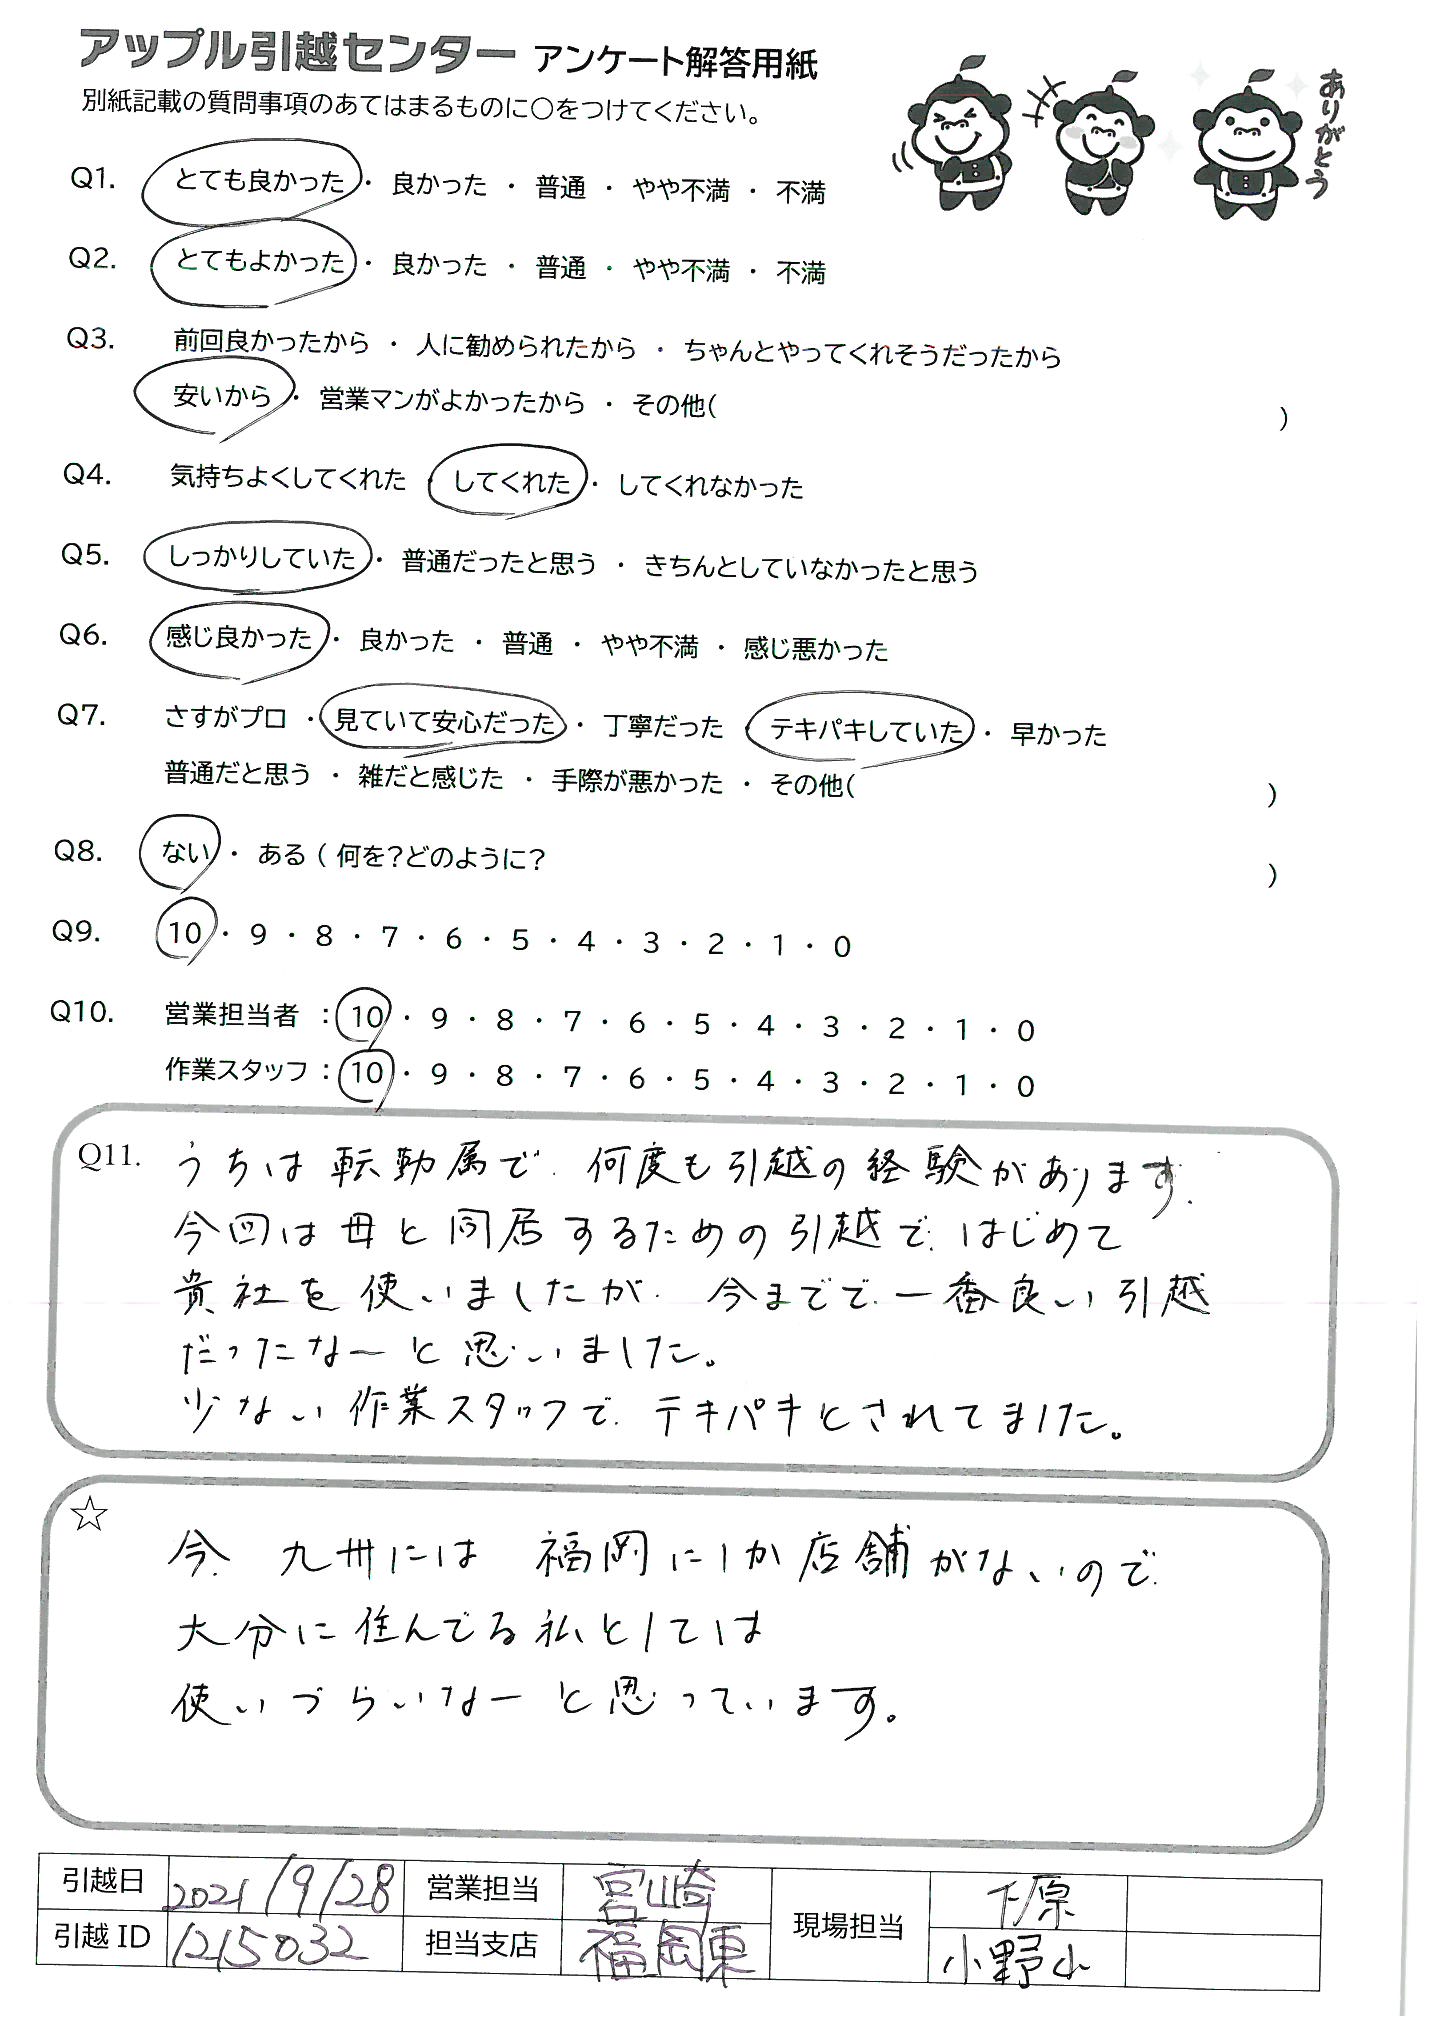 アップル引越センター アンケート解答用紙
別紙記載の質問事項のあてはまるものに〇をつけてください。
ありがとう
Q1. とても良かった ・ 良かった ・ 普通 ・ やや不満 ・ 不満
Q2. とてもよかった ・ 良かった ・ 普通 ・ やや不満 ・ 不満
Q3. 前回良かったから ・ 人に勧められたから ・ ちゃんとやってくれそうだったから
安いから ・ 営業マンがよかったから ・ その他( )
Q4. 気持ちよくしてくれた ・ してくれた ・ してくれなかった
Q5. しっかりしていた ・ 普通だったと思う ・ きちんとしていなかったと思う
Q6. 感じ良かった ・ 良かった ・ 普通 ・ やや不満 ・ 感じ悪かった
Q7. さすがプロ ・ 見ていて安心だった ・ 丁寧だった ・ テキパキしていた ・ 早かった
普通だと思う ・ 雑だと感じた ・ 手際が悪かった ・ その他( )
Q8. ない ・ ある ( 何を?どのように? )
Q9. 10 ・ 9 ・ 8 ・ 7 ・ 6 ・ 5 ・ 4 ・ 3 ・ 2 ・ 1 ・ 0
Q10. 営業担当者 : 10 ・ 9 ・ 8 ・ 7 ・ 6 ・ 5 ・ 4 ・ 3 ・ 2 ・ 1 ・ 0
作業スタッフ : 10 ・ 9 ・ 8 ・ 7 ・ 6 ・ 5 ・ 4 ・ 3 ・ 2 ・ 1 ・ 0
Q11. うちは転勤属で、何度も引越の経験があります。
今回は母と同居するための引越で、はじめて
貴社を使いましたが、今までで一番良い引越
だったなーと思いました。
少ない作業スタッフで、テキパキとされてました。
☆
今、九州には 福岡にしか店舗がないので、
大分に住んでる私としては
使いづらいなーと思っています。
引越日 2021/9/28 営業担当 宮崎 現場担当 下原
引越ID 1215032 担当支店 福岡東 小野山